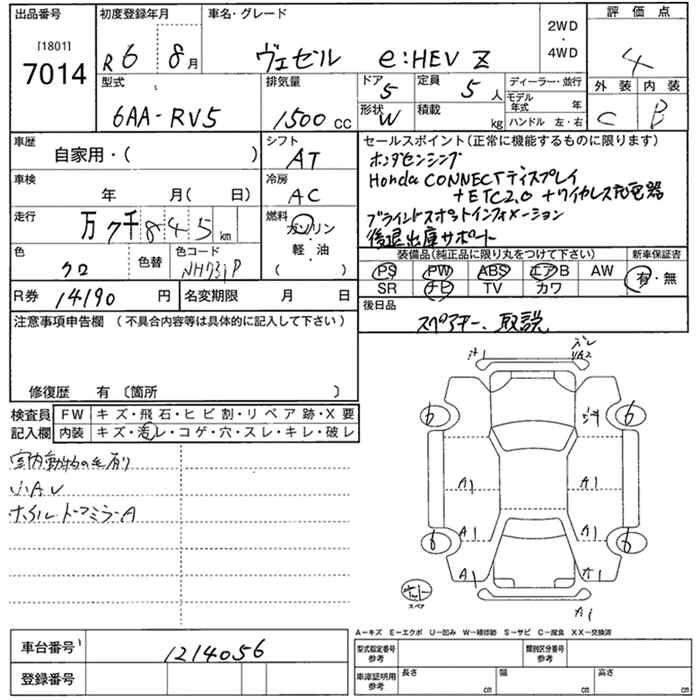 出品番号 初度登録年月 車名・グレード 評価点
[1801] 7014 R6 8月 ヴェゼル e:HEV Z 2WD・4WD 4
型式 排気量 ドア 定員 ディーラー・並行 外装 内装
6AA-RV5 1500cc 5 5人 モデル年式 年 C B
形状 W 積載 kg ハンドル 左・右
車歴 自家用・( ) シフト AT セールスポイント(正常に機能するものに限ります)
ホンダセンシング
車検 年 月( 日) 冷房 AC Honda CONNECTディスプレイ
+ETC2.0+ワイヤレス充電器
走行 万7千845km 燃料 ガソリン 軽・油 ( ) ブラインドスポットインフォメーション
後退出庫サポート
色 クロ 色替 色コード NH731P 装備品(純正品に限り丸をつけて下さい) 新車保証書
PS PW ABS エアB AW 有・無
SR ナビ TV カワ
R券 14190円 名変期限 月 日 後日品
スペアキー、取説
注意事項申告欄 (不具合内容等は具体的に記入して下さい)
修復歴 有(箇所 )
検査員 FW キズ・飛石・ヒビ割・リペア跡・X要
記入欄 内装 キズ・汚レ・コゲ・穴・スレ・キレ・破レ
室内動物の毛有り
小AU
ホイルドアミラーA
A1 A1
A1 A1
A1 A1
スペア
A1
A-キズ E-エクボ U-凹み W-補修跡 S-サビ C-腐食 XX-交換済
車台番号 1214056 型式指定番号 参考 類別区分番号 参考
登録番号 車庫証明用 参考 長さ cm 幅 cm 高さ cm